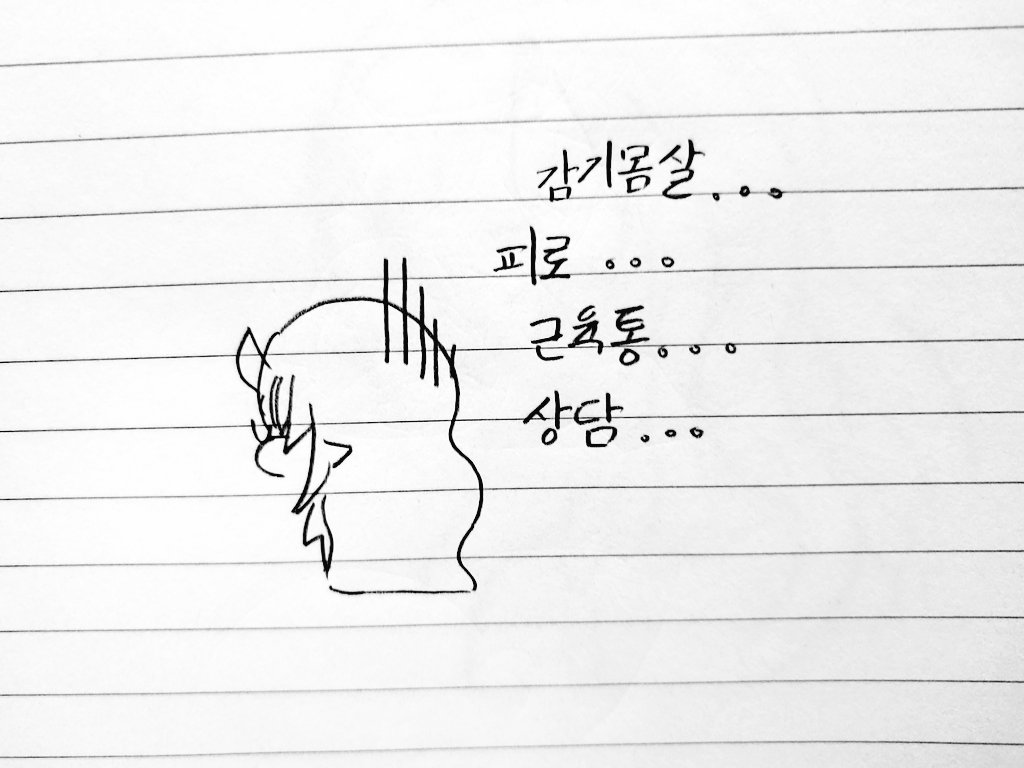 감기몸살...
피로...
근육통...
상담...